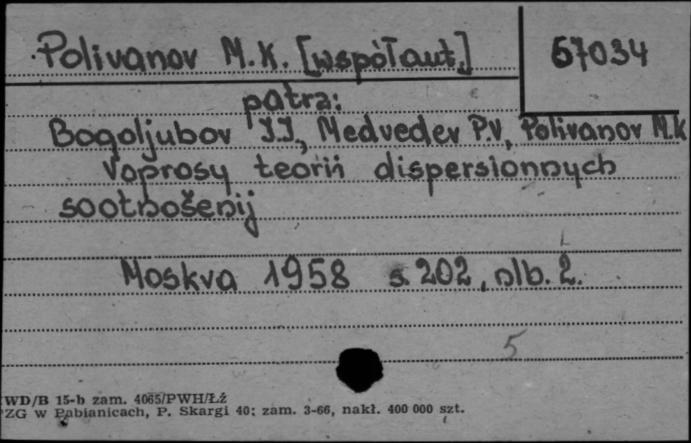 Polivanov M.K. [współaut] 67034
patrz:
Bogoljubov I I, Medvedev P.V, Polivanov M.K
Voprosy teorii dispersionnych
sootnošenij
Moskva 1958 s. 202, nlb. 2.
5
WD/B 15-b zam. 4065/PWH/Łź
ZG w Pabianicach, P. Skargi 40; zam. 3-66, nakł. 400 000 szt.